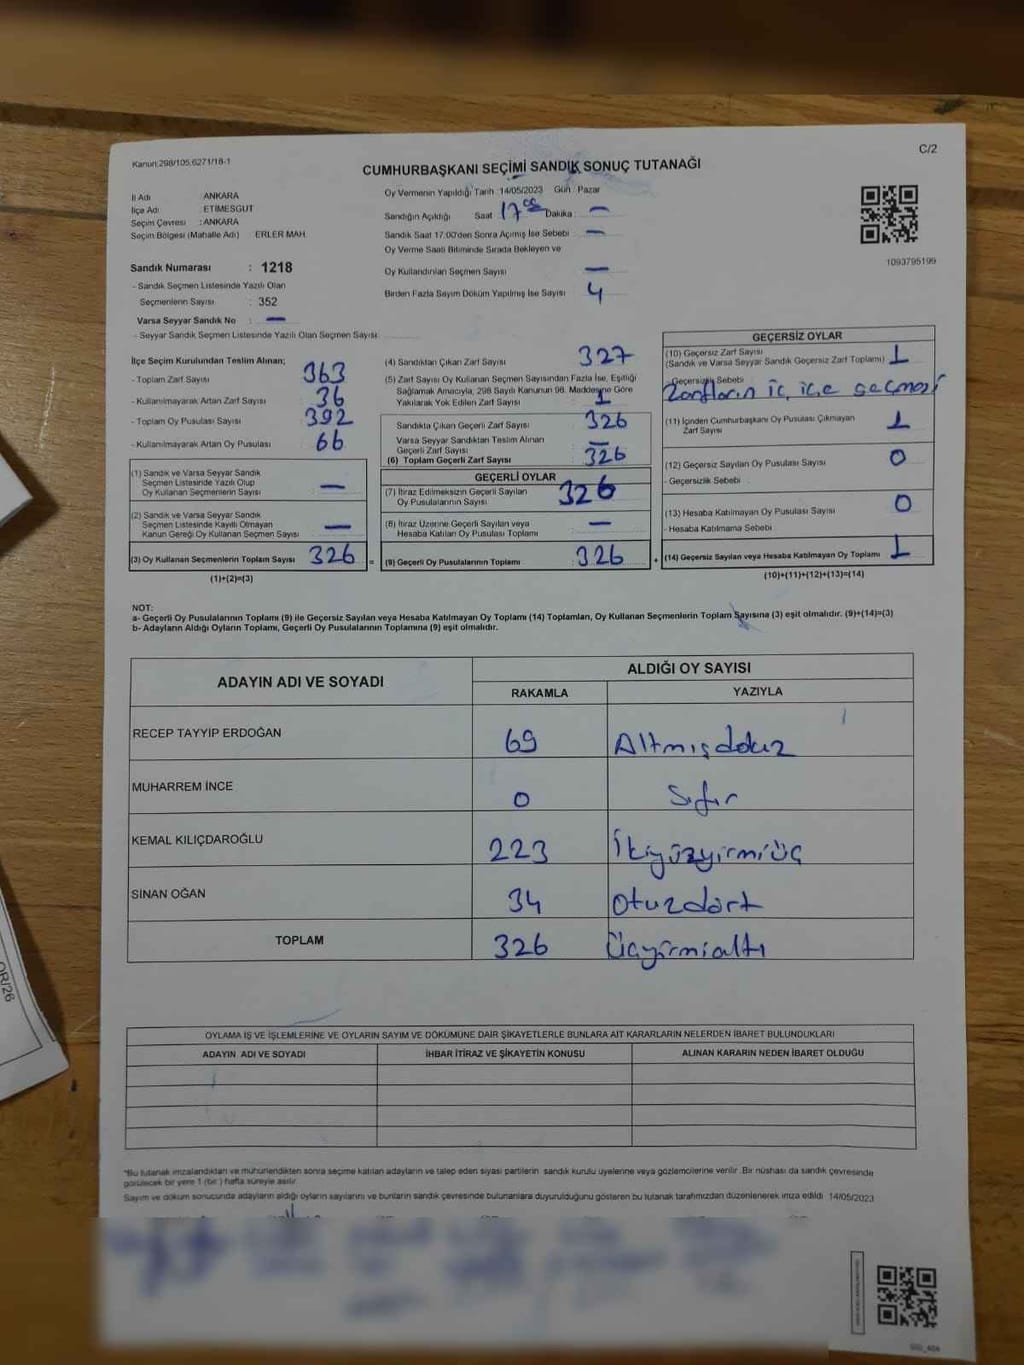 Kanun:298/105,6271/18-1
C/2
CUMHURBAŞKANI SEÇİMİ SANDIK SONUÇ TUTANAĞI
İl Adı ANKARA
İlçe Adı : ETİMESGUT
Seçim Çevresi : ANKARA
Seçim Bölgesi (Mahalle Adı) ERLER MAH.
Sandık Numarası : 1218
- Sandık Seçmen Listesinde Yazılı Olan
Seçmenlerin Sayısı : 352
Varsa Seyyar Sandık No : —
- Seyyar Sandık Seçmen Listesinde Yazılı Olan Seçmen Sayısı
Oy Vermenin Yapıldığı Tarih 14/05/2023 Gün : Pazar
Sandığın Açıldığı Saat 17 00 Dakika : —
Sandık Saat 17.00'den Sonra Açmış İse Sebebi : —
Oy Verme Saati Bitiminde Sırada Bekleyen ve
Oy Kullandırılan Seçmen Sayısı —
Birden Fazla Sayım Döküm Yapılmış İse Sayısı : 4
1093795199
İlçe Seçim Kurulundan Teslim Alınan;
- Toplam Zarf Sayısı 363
- Kullanılmayarak Artan Zarf Sayısı 36
- Toplam Oy Pusulası Sayısı 392
- Kullanılmayarak Artan Oy Pusulası 66
(1) Sandık ve Varsa Seyyar Sandık
Seçmen Listesinde Yazılı Olup
Oy Kullanan Seçmenlerin Sayısı —
(2) Sandık ve Varsa Seyyar Sandık
Seçmen Listesinde Kayıtlı Olmayan
Kanun Gereği Oy Kullanan Seçmen Sayısı —
(3) Oy Kullanan Seçmenlerin Toplam Sayısı 326 =
(1)+(2)=(3)
(4) Sandıktan Çıkan Zarf Sayısı : 327
(5) Zarf Sayısı Oy Kullanan Seçmen Sayısından Fazla İse, Eşitliği
Sağlamak Amacıyla, 298 Sayılı Kanunun 98. Maddesine Göre
Yakılarak Yok Edilen Zarf Sayısı : 1
Sandıkta Çıkan Geçerli Zarf Sayısı : 326
Varsa Seyyar Sandıktan Teslim Alınan
Geçerli Zarf Sayısı —
(6) Toplam Geçerli Zarf Sayısı : 326
GEÇERLİ OYLAR
(7) İtiraz Edilmeksizin Geçerli Sayılan
Oy Pusulalarının Sayısı : 326
(8) İtiraz Üzerine Geçerli Sayılan veya
Hesaba Katılan Oy Pusulası Toplamı : —
(9) Geçerli Oy Pusulalarının Toplamı : 326 +
GEÇERSİZ OYLAR
(10) Geçersiz Zarf Sayısı
(Sandık ve Varsa Seyyar Sandık Geçersiz Zarf Toplamı) : 1
- Geçersizlik Sebebi
Zarfların iç içe geçmesi
(11) İçinden Cumhurbaşkanı Oy Pusulası Çıkmayan
Zarf Sayısı 1
(12) Geçersiz Sayılan Oy Pusulası Sayısı : 0
- Geçersizlik Sebebi :
(13) Hesaba Katılmayan Oy Pusulası Sayısı : 0
- Hesaba Katılmama Sebebi
(14) Geçersiz Sayılan veya Hesaba Katılmayan Oy Toplamı : 1
(10)+(11)+(12)+(13)=(14)
NOT:
a- Geçerli Oy Pusulalarının Toplamı (9) ile Geçersiz Sayılan veya Hesaba Katılmayan Oy Toplamı (14) Toplamları, Oy Kullanan Seçmenlerin Toplam Sayısına (3) eşit olmalıdır. (9)+(14)=(3)
b- Adayların Aldığı Oyların Toplamı, Geçerli Oy Pusulalarının Toplamına (9) eşit olmalıdır.
ADAYIN ADI VE SOYADI ALDIĞI OY SAYISI
RAKAMLA YAZIYLA
RECEP TAYYİP ERDOĞAN 69 Altmışdokuz
MUHARREM İNCE 0 Sıfır
KEMAL KILIÇDAROĞLU 223 İkiyüzyirmiüç
SİNAN OĞAN 34 otuzdört
TOPLAM 326 Üçyirmialtı
OYLAMA İŞ VE İŞLEMLERİNE VE OYLARIN SAYIM VE DÖKÜMÜNE DAİR ŞİKAYETLERLE BUNLARA AİT KARARLARIN NELERDEN İBARET BULUNDUKLARI
ADAYIN ADI VE SOYADI İHBAR İTİRAZ VE ŞİKAYETİN KONUSU ALINAN KARARIN NEDEN İBARET OLDUĞU
*Bu tutanak imzalandıktan ve mühürlendikten sonra seçime katılan adayların ve talep eden siyasi partilerin sandık kurulu üyelerine veya gözlemcilerine verilir. Bir nüshası da sandık çevresinde
görülecek bir yere 1 (bir ) hafta süreyle asılır.
Sayım ve döküm sonucunda adayların aldığı oyların sayılarını ve bunların sandık çevresinde bulunanlara duyurulduğunu gösteren bu tutanak tarafımızdan düzenlenerek imza edildi 14/05/2023
OR/26